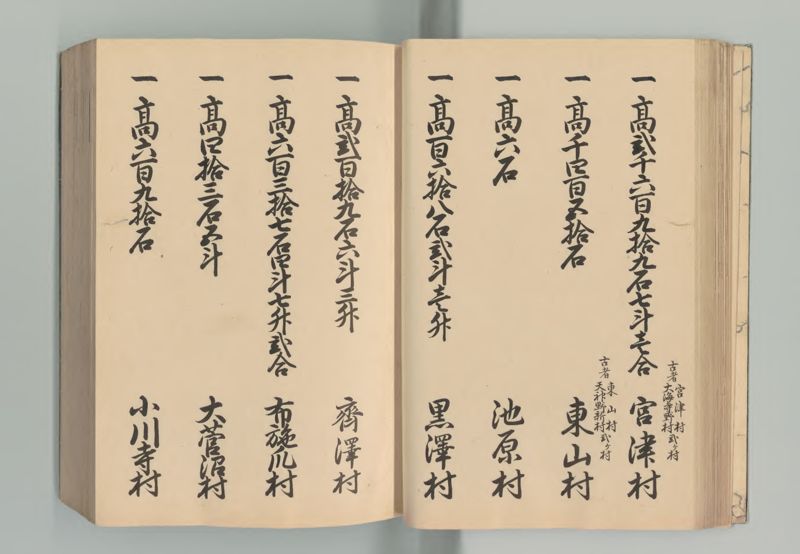 一 高弐千六百九拾九石七斗壱合 宮津村
古者 宮津村 大海寺野村 弐ヶ村
一 高千四百五拾石 東山村
古者 東山村 天神野新村 弐ヶ村
一 高六石 池原村
一 高百六拾八石弐斗壱升 黒澤村
一 高弐百拾九石六斗三升 齊澤村
一 高六百三拾七石四斗七升弐合 布施爪村
一 高四拾三石五斗 大菅沼村
一 高六百九拾石 小川寺村